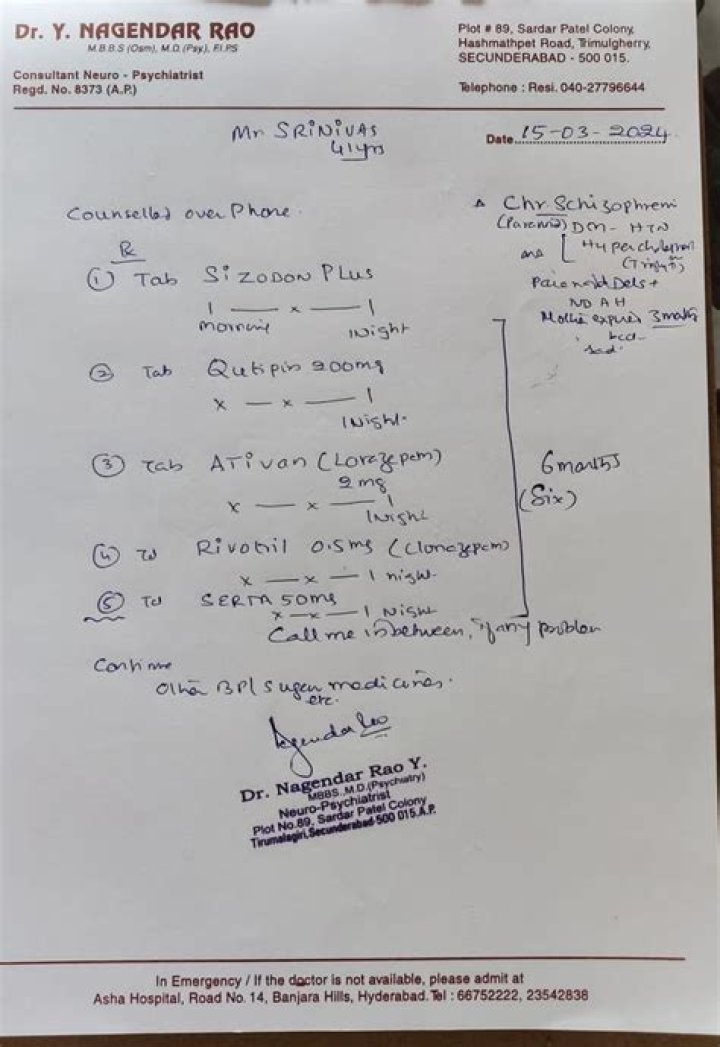 Dr. Y. NAGENDAR RAO
M.B.B.S (Osm), M.D. (Psy), F.I.P.S
Consultant Neuro - Psychiatrist
Regd. No. 8373 (A.P.)
Plot # 89, Sardar Patel Colony,
Hashmathpet Road, Trimulgherry,
SECUNDERABAD - 500 015.
Telephone : Resi. 040-27796644
Mr SRINIVAS
41yrs
Date 15-03-2024
Counselled over Phone.
Δ Chr. Schizophreni
(Paranoid) DM - HTN
Paranoid Dels +
3 months
sad.
Rx
① Tab SIZODON PLUS
1 — x — 1
morning 1Night
② Tab Qutipin 200mg
x — x — 1
1Night.
③ Tab ATIVAN (Lorazepam)
2mg
x — x — 1
1Night
④ Td Rivotril 0.5mg (Clonazepam)
x — x — 1 night.
⑤ Td SERTA 50mg
x — x — 1 Night
6 months
(Six)
Call me inbetween, if any problem
Continue
Other BP/Sugar medicines.
etc.
Nagendar Rao
Dr. Nagendar Rao Y.
MBBS.,M.D.(Psychiatry)
Neuro-Psychiatrist
Plot No.89, Sardar Patel Colony
Tirumalagiri,Secunderabad-500 015.A.P.
In Emergency / If the doctor is not available, please admit at
Asha Hospital, Road No. 14, Banjara Hills, Hyderabad. Tel : 66752222, 23542838